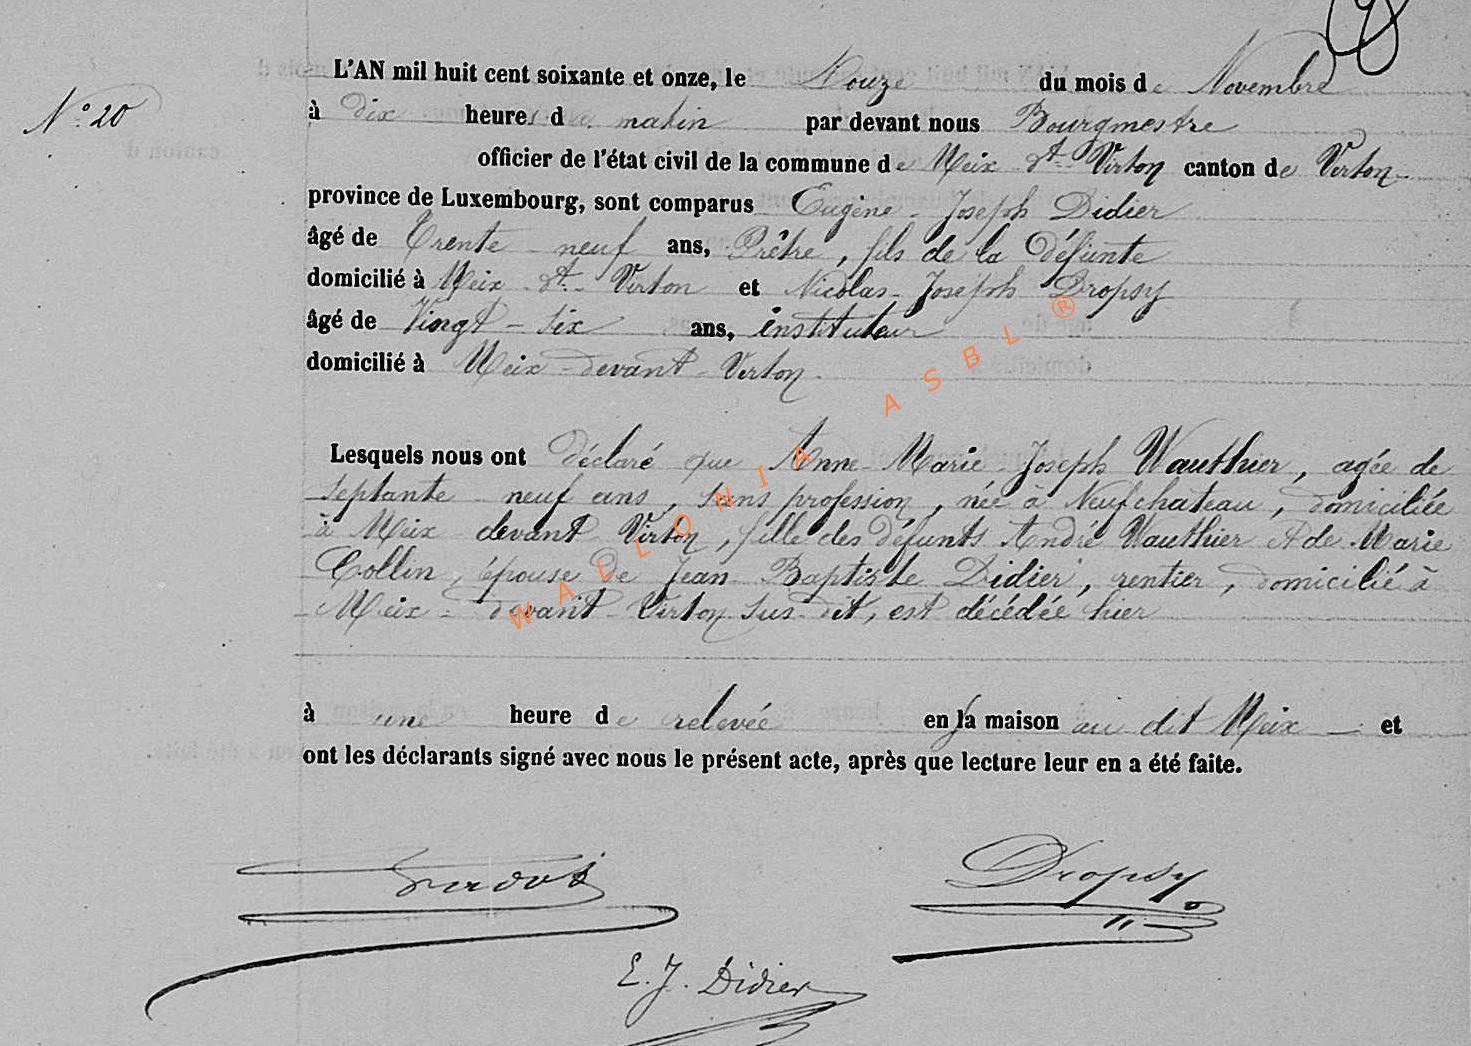 N° 20
L'AN mil huit cent soixante et onze, le Douze du mois de Novembre
à Dix heures d matin par devant nous Bourgmestre
officier de l'état civil de la commune de Meix dt Virton canton de Virton
province de Luxembourg, sont comparus Eugène-Joseph Didier
âgé de Trente-neuf ans, Prêtre, fils de la Défunte
domicilié à Meix-dt-Virton et Nicolas-Joseph Dropsy
âgé de Vingt-six ans, instituteur
domicilié à Meix-devant-Virton.
Lesquels nous ont déclaré que Anne-Marie-Joseph Wauthier, agée de
septante-neuf ans, sans profession, née à Neufchateau, domiciliée
à Meix-devant-Virton, fille des défunts André Wauthier et de Marie
Collin, épouse de Jean-Baptiste Didier, rentier, domicilié à
Meix-devant-Virton sus-dit, est décédée hier
à une heure de relevée en la maison au dit Meix — et
ont les déclarants signé avec nous le présent acte, après que lecture leur en a été faite.
Dropsy
E. J. Didier
WALLONIA ASBL ®